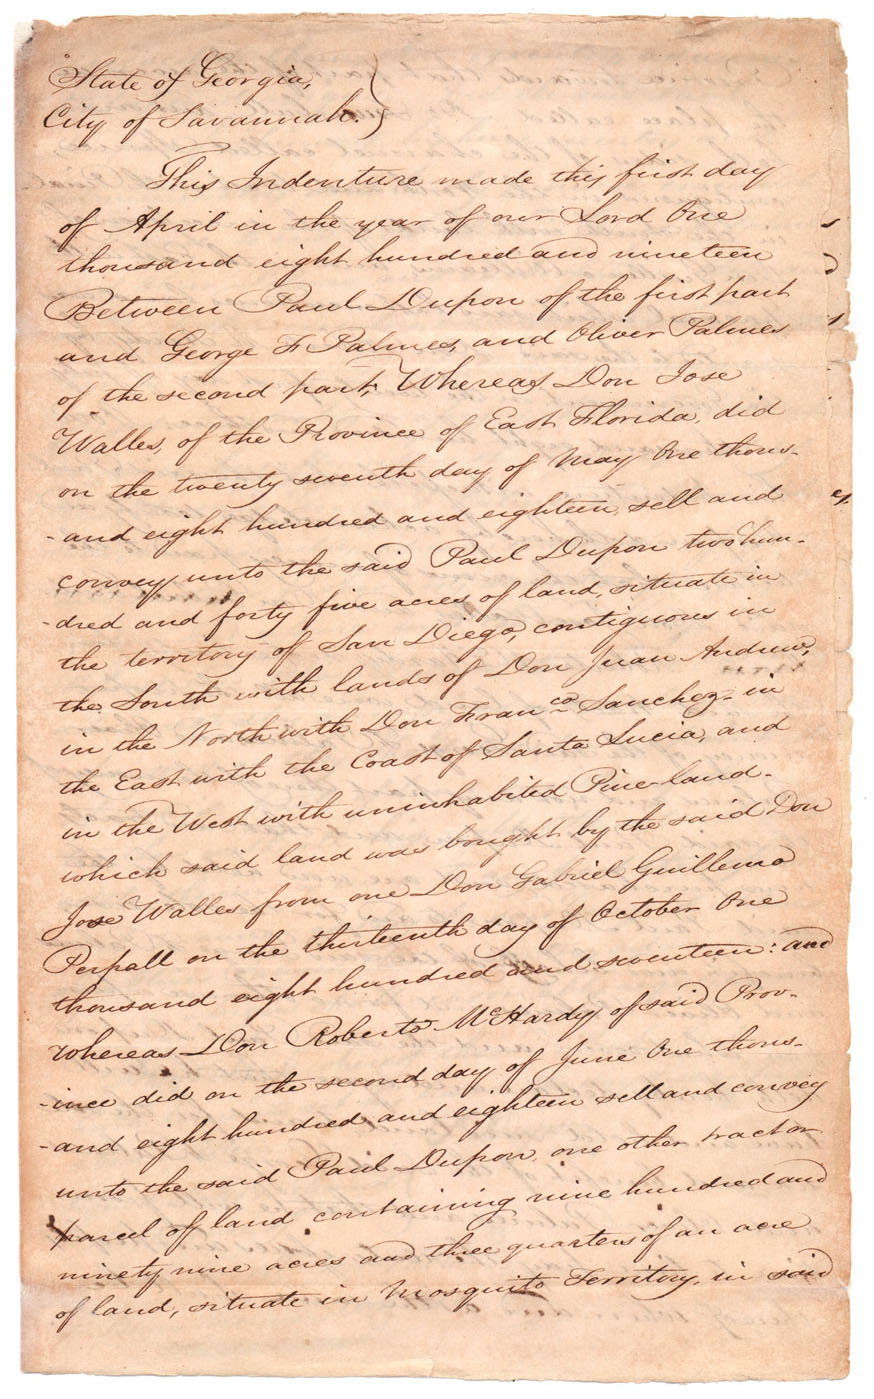 State of Georgia,
City of Savannah. }
This Indenture made this first day
of April in the year of our Lord One
thousand eight hundred and nineteen
Between Paul Dupon of the first part
and George F Palmes, and Oliver Palmes
of the second part, Whereas Don Jose
Walles, of the Province of East Florida, did
on the twenty seventh day of May One thous-
-and eight hundred and eighteen, sell and
convey unto the said Paul Dupon two hun-
-dred and forty five acres of land, situate in
the territory of San Diego, contiguous in
the South with lands of Don Juan Andrew,
in the North with Don Franco Sanchez- in
the East with the Coast of Santa Lucia, and
in the West with uninhabited Pine-land-
which said land was bought by the said Don
Jose Walles from one Don Gabriel Guillermo
Perpall on the thirteenth day of October One
thousand eight hundred and seventeen: and
whereas Don Roberto McHardy, of said Prov-
-ince did on the second day of June One thous-
-and eight hundred and eighteen sell and convey
unto the said Paul Dupon, one other tract or
parcel of land containing nine hundred and
ninety nine acres and three quarters of an acre
of land, situate in Mosquito Territory, in said